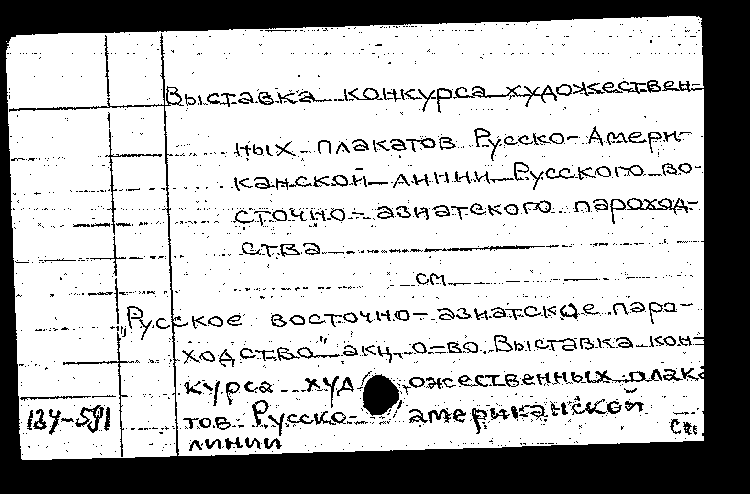 Выставка конкурса художествен-
ных плакатов Русско-Амери-
канской линии Русского во-
сточно-азиатского пароход-
ства
см
„Русское восточно-азиатское паро-
ходство" акц. о-во. Выставка кон-
курса художественных плака
тов Русско-американской
линии
124-591